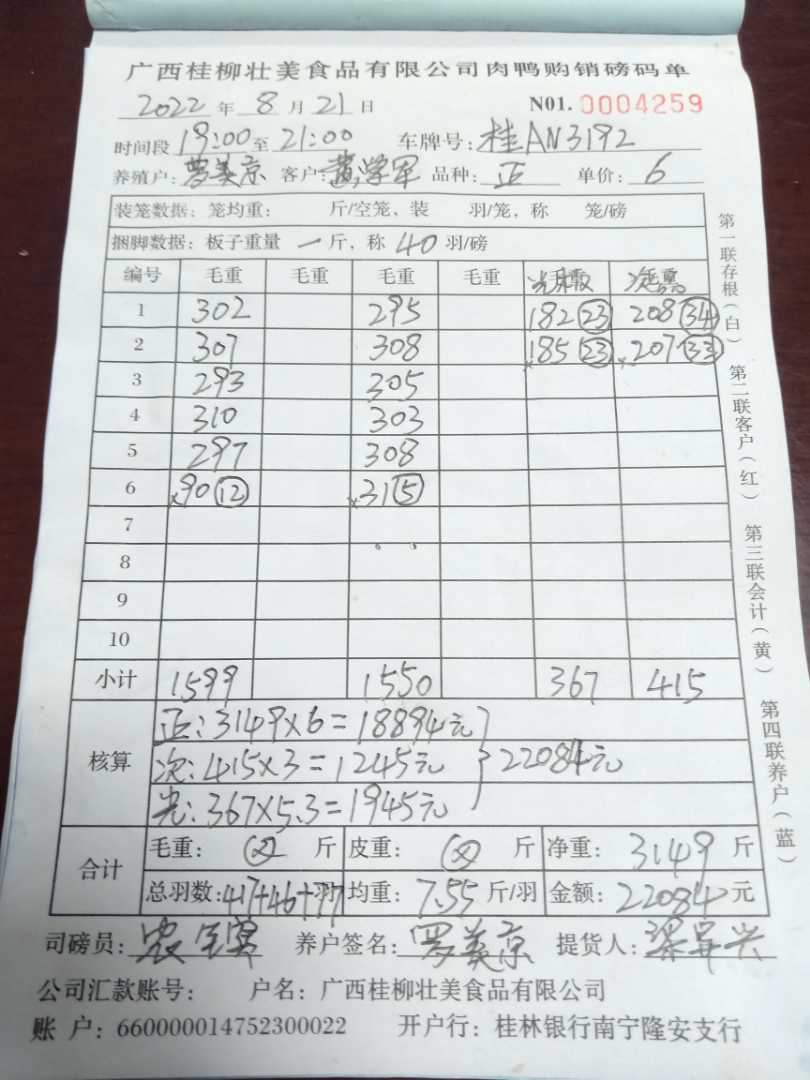 广西桂柳壮美食品有限公司肉鸭购销磅码单
2022 年 8 月 21 日 N01. 0004259
时间段 19:00 至 21:00 车牌号: 桂AN3192
养殖户: 罗美京 客户: 黄学军 品种: 正 单价: 6
装笼数据: 笼均重: 斤/空笼、装 羽/笼, 称 笼/磅
捆脚数据: 板子重量 一 斤, 称 40 羽/磅
编号 毛重 毛重 毛重 毛重
1 302 295 182 23 208 34
2 307 308 ×185 23 ×207 33
3 293 305
4 310 303
5 297 308
6 ×90 12 ×31 5
7
8
9
10
小计 1599 1550 367 415
核算
正: 3149×6=18894元
次: 415×3=1245元 } 22084元
光: 367×5.3=1945元
合计
毛重: 斤 皮重: 斤 净重: 3149 斤
总羽数: 417+46+ 羽 均重: 7.55 斤/羽 金额: 22084 元
司磅员: 养户签名: 罗美京 提货人: 梁异兴
公司汇款账号: 户名: 广西桂柳壮美食品有限公司
账 户: 660000014752300022 开户行: 桂林银行南宁隆安支行
第一联存根(白)
第二联客户(红)
第三联会计(黄)
第四联养户(蓝)